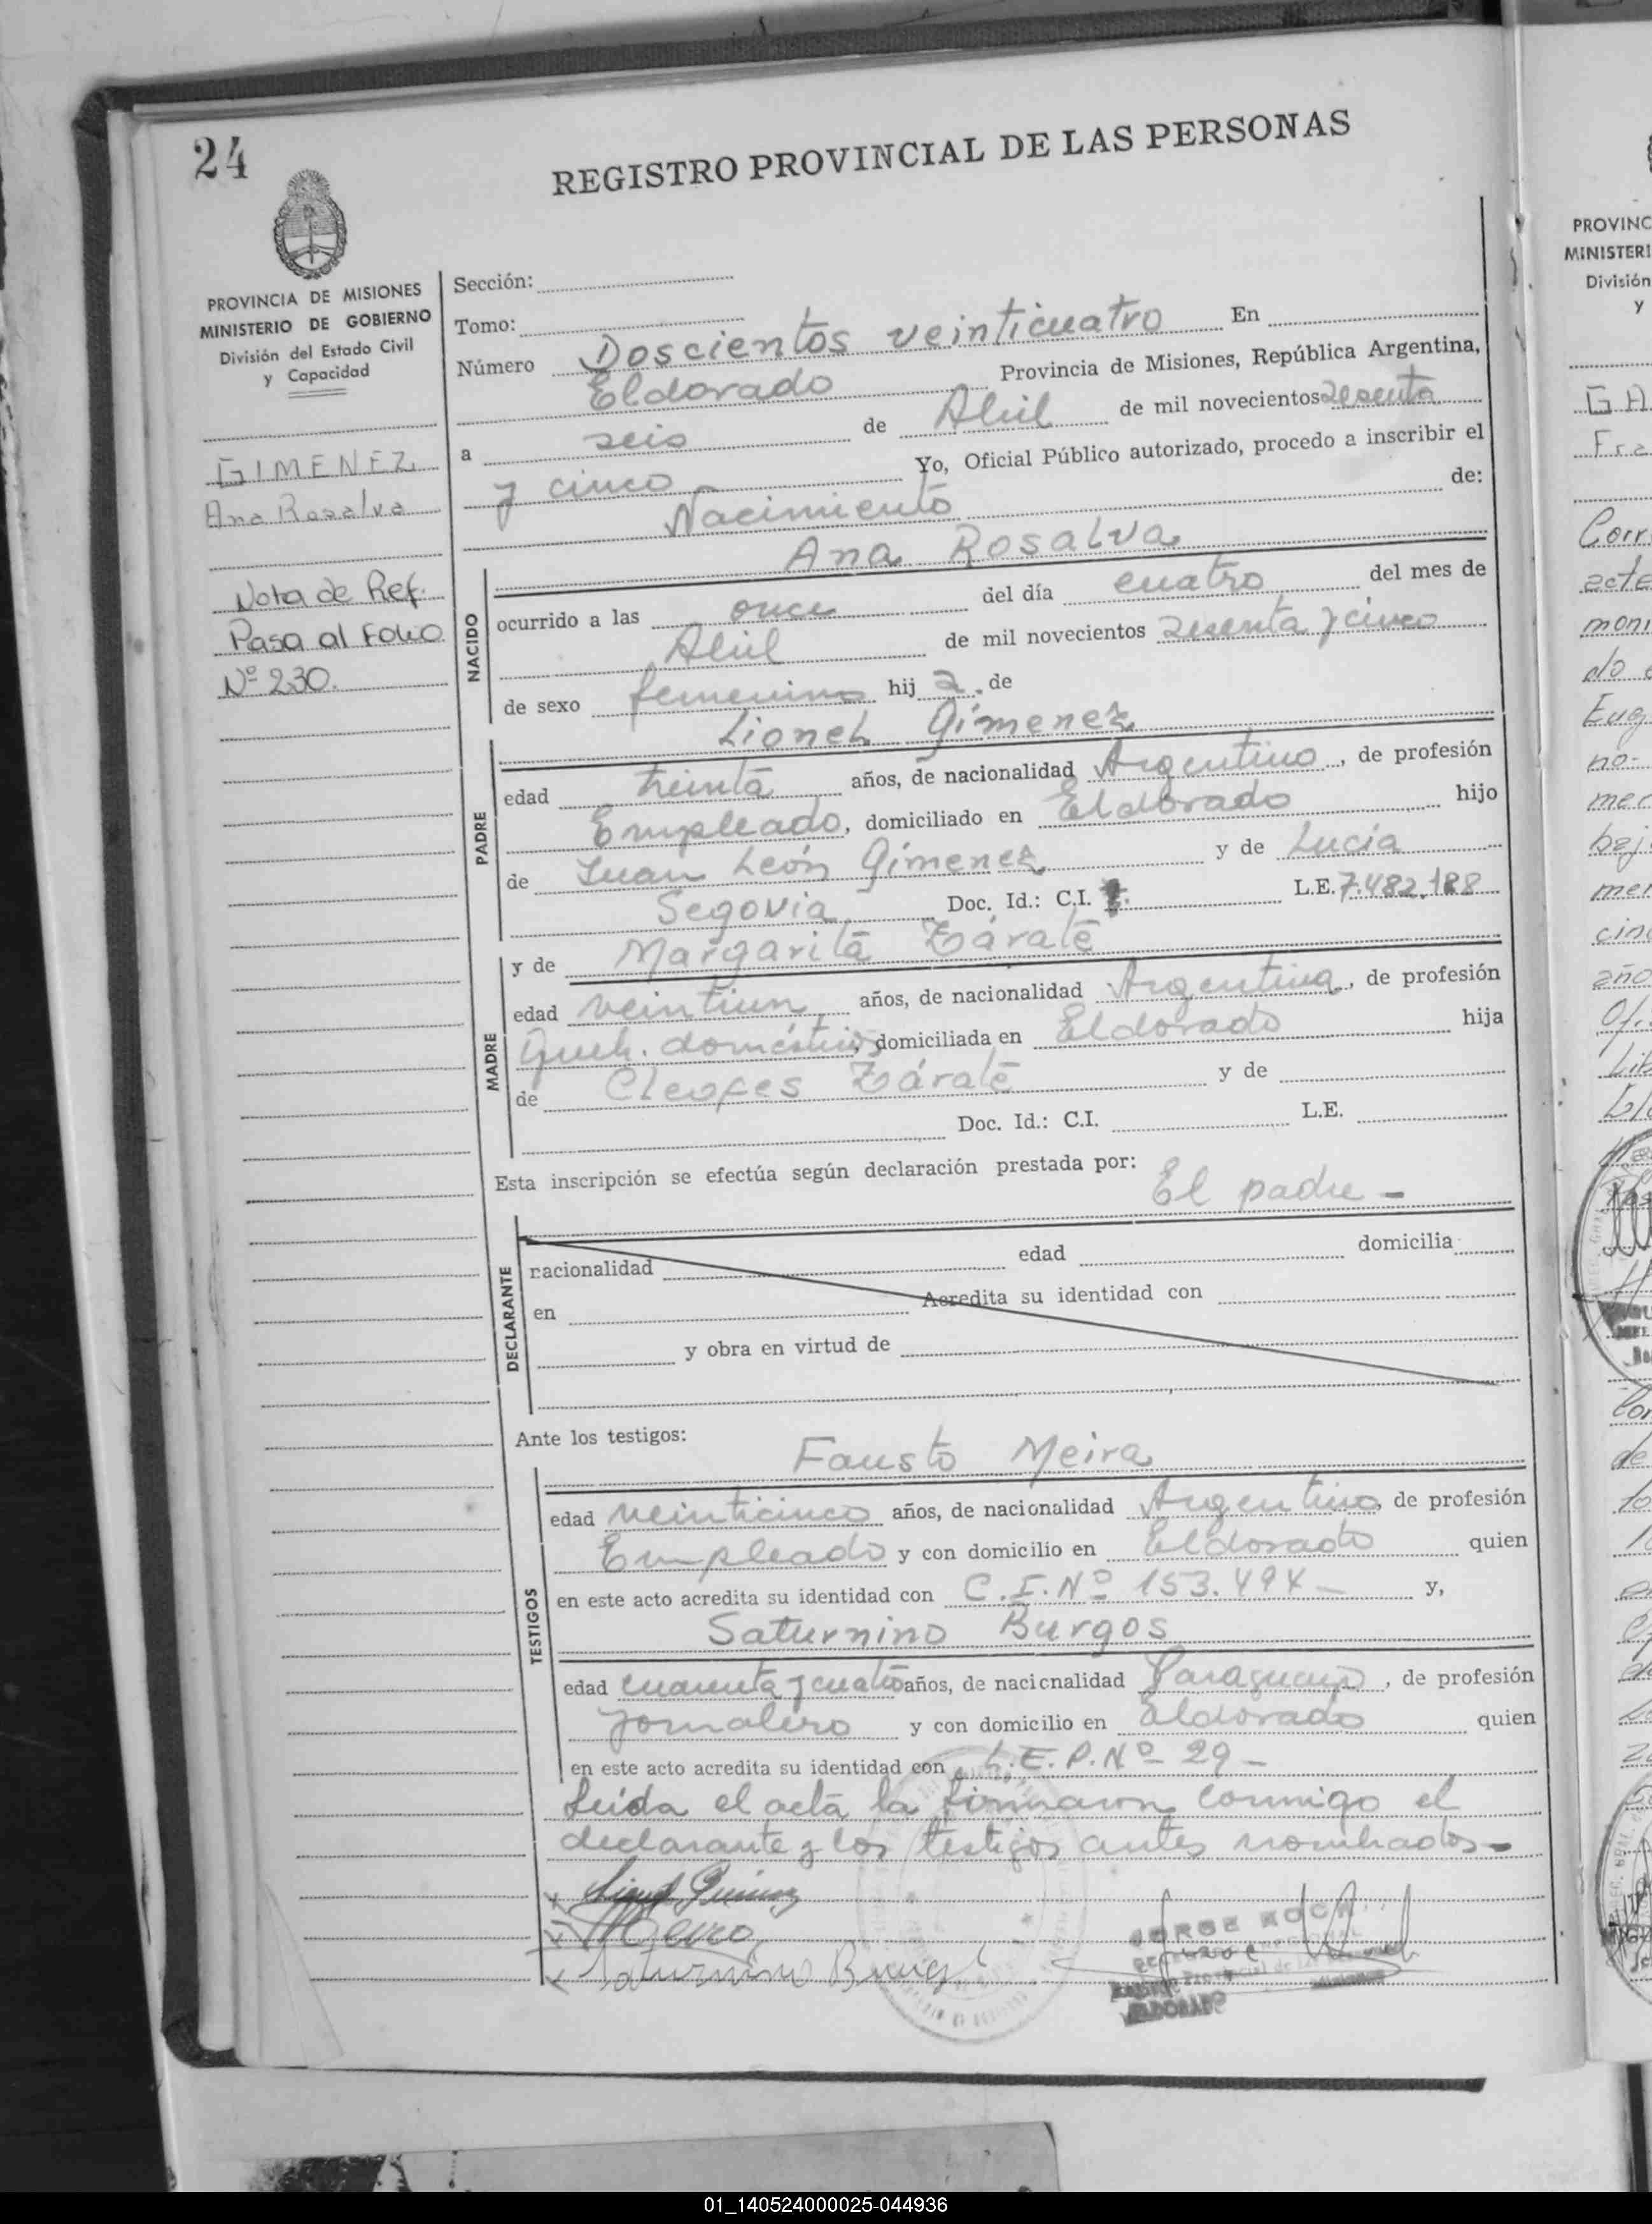 24
REGISTRO PROVINCIAL DE LAS PERSONAS
PROVINCIA DE MISIONES
MINISTERIO DE GOBIERNO
División del Estado Civil
y Capacidad
GIMENEZ
Ana Rosalva
Nota de Ref.
Pasa al Folio
Nº 230.
Sección:
Tomo:
Número Doscientos veinticuatro En
Eldorado Provincia de Misiones, República Argentina,
a seis de Abril de mil novecientos sesenta
y cinco Yo, Oficial Público autorizado, procedo a inscribir el
Nacimiento de:
Ana Rosalva
NACIDO
ocurrido a las once del día cuatro del mes de
Abril de mil novecientos sesenta y cinco
de sexo femenino hij a. de
Lionel Gimenez
PADRE
edad treinta años, de nacionalidad Argentino, de profesión
Empleado, domiciliado en Eldorado hijo
de Juan León Gimenez y de Lucía
Segovia Doc. Id.: C.I. L.E. 7.482.188
y de Margarita Zárate
MADRE
edad veintiun años, de nacionalidad Argentina, de profesión
Queh. domésticos, domiciliada en Eldorado hija
de Cleofes Zárate y de
Doc. Id.: C.I. L.E.
Esta inscripción se efectúa según declaración prestada por:
El padre -
DECLARANTE
nacionalidad edad domicilia
en Acredita su identidad con
y obra en virtud de
Ante los testigos:
Fausto Meira
TESTIGOS
edad veinticinco años, de nacionalidad Argentino, de profesión
Empleado y con domicilio en Eldorado quien
en este acto acredita su identidad con C.I.Nº 153.494 - y,
Saturnino Burgos
edad cuarenta y cuatro años, de nacicnalidad Paraguayo, de profesión
Jornalero y con domicilio en Eldorado quien
en este acto acredita su identidad con L.E.P.Nº 29 -
Leída el acta la firmaron conmigo el
declarante y los testigos antes nombrados -
Saturnino Burgos
JORGE KOCH
ELDORADO
PROVINC
MINISTERI
División
y
GA
Fra
Corr
acte
moni
do
Eug
no-
mer
baj
mer
cin
año
Of.
Lib
01_140524000025-044936